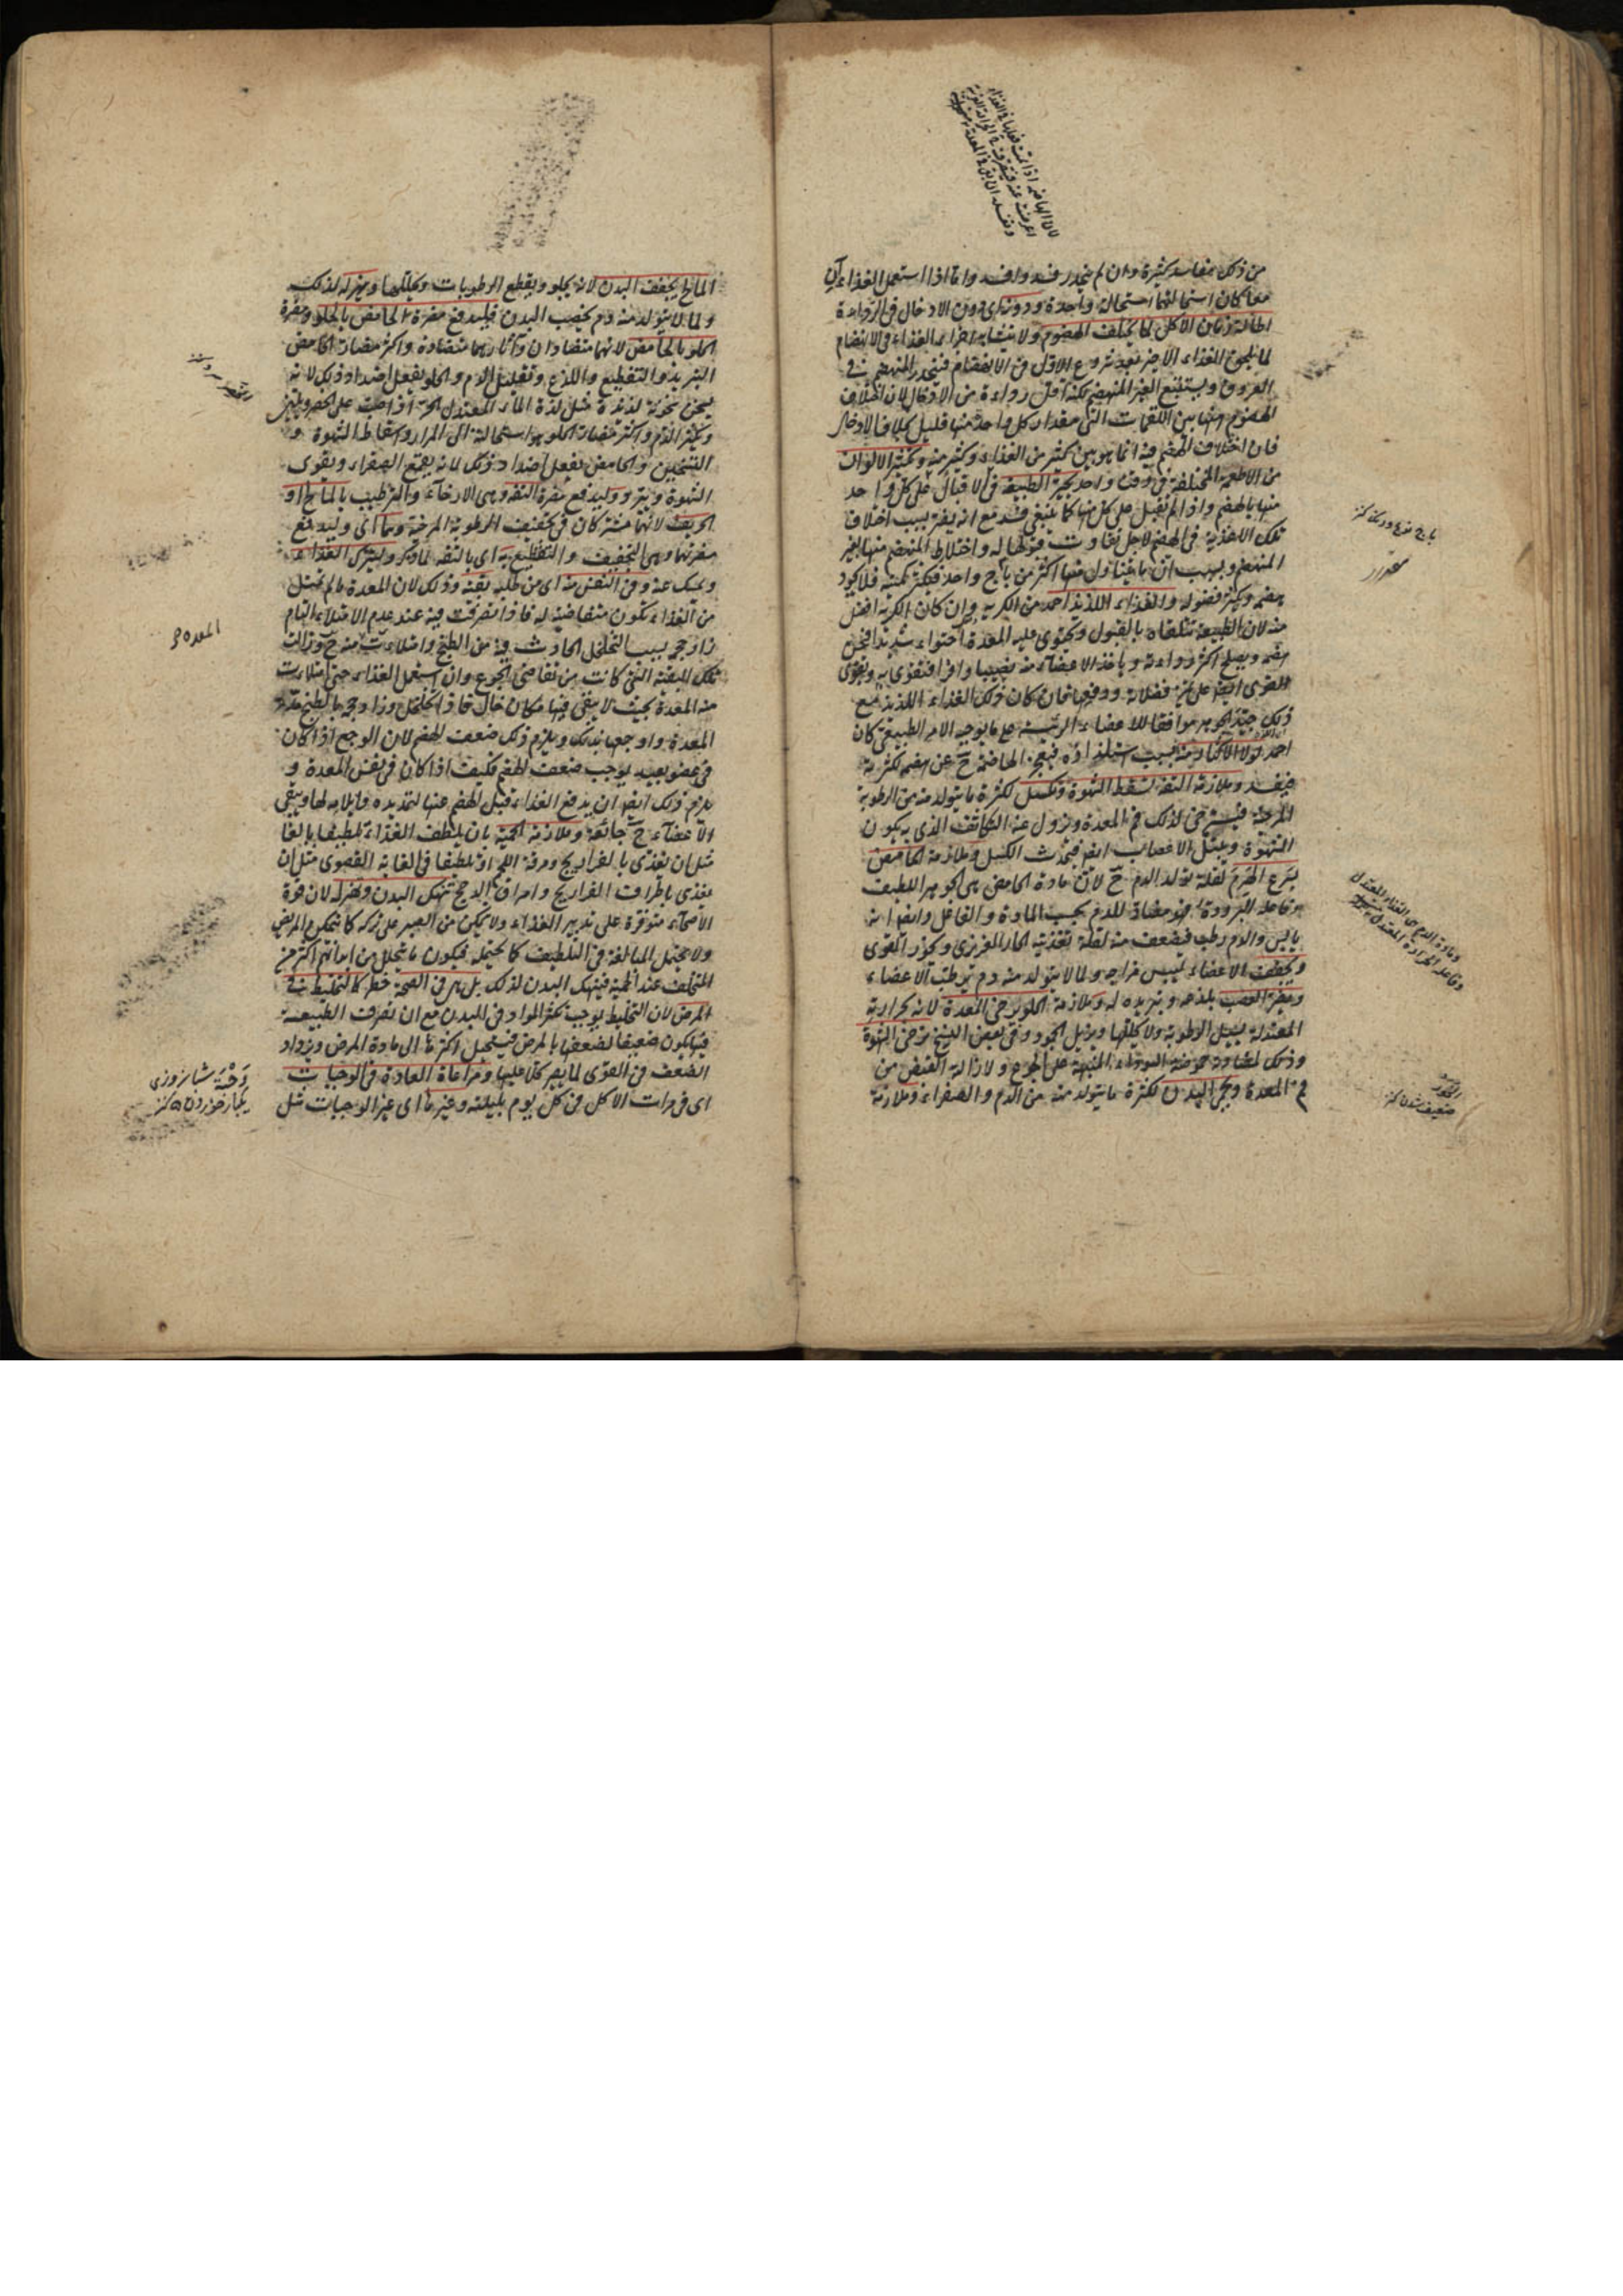 من ذلك مفاسد كثيرة وان لم ينحدر فسد وافسد واما اذا استعمل الغذاءآن
معا كان استحالتهما استحالة واحدة ودونه اى دون الادخال فى الرداءة
اطالة زمان الاكل لما يختلف الهضوم ولا يتشابه اجزاء الغذاء فى الانهضام
لما يلحق الغذاء الاخير بعد شروع الاول فى الانهضام فينحدر المنهضم فى
العروق ويستتبع الغير المنهضم لكنه اقل رداءة من الادخال لان اختلاف
الهضوم منها بين اللقمات التى مقدار كل واحد منها قليل بخلاف الادخال
فان اختلاف الهضم فيه انما هو بين كثير من الغذاء وكثير منه وتكثير الالوان
من الاطعمة المختلفة فى وقت واحد محير الطبيعة فى الاقبال على كل واحد
منها بالهضم واذا لم تقبل على كل منها كما ينبغى فسد مع انه يضر بسبب اختلاف
تلك الاغذية فى الهضم لاجل تفاوت قبولها له واختلاط المنهضم منها بغير
المنهضم وبسبب ان ما يتناول منها اكثر من باج واحد فيكثر كميته فلا يجود
هضمه ويكثر فضوله والغذاء اللذيذ احمد من الكريه وان كان الكريه افضل
منه لان الطبيعة تتلقاه بالقبول ويحتوى عليه المعدة احتواء شديدا فيحسن
هضمه ويصلح اكثر رداءته وياخذ الاعضاء منه نصيبا وافرا فتقوى به ويقوى
القوى ايضا على تميز فضلاته ودفعها فان كان ذلك الغذاء اللذيذ مع
ذلك جيد الجوهر موافقا للاعضاء الرئيسة على ما يوجبه الامر الطبيعى كان
احمد لولا الاكثار منه بسبب استلذاذه فيعجز الهاضمة ح عن هضمه لكثرته
فيفسد وملازمة التفه تسقط الشهوة وتكسل لكثرة ما يتولد منه من الرطوبة
المرخية فيسترخى لذلك فم المعدة ويزول عنه التكاثف الذى به يكون
الشهوة ويبتل الاعصاب ايضا فيحدث الكسل وملازمة الحامض
يسرع الهرم لقلة تولد الدم ح لان مادة الحامض هى الجوهر اللطيف
وفاعله البرودة فهو مضاد للدم بحسب المادة والفاعل وايضا انه
يابس والدم رطب فيضعف منه لقلة تغذيته الحار الغريزى ويخور القوى
ويجفف الاعضاء ليبس مزاجه ولما لا يتولد منه دم يرطب الاعضاء
ويضر العصب بلذعه وتبريده له وملازمة الحلو يرخى المعدة لانه بحرارته
المعتدلة يسيل الرطوبة ولا يحللها ويزيل الجمود وفى بعض النسخ يرخى الشهوة
وذلك لمضادته حموضة السوداء المنبهة على الجوع ولازالة القبض من
فم المعدة ويحمى البدن لكثرة ما يتولد منه من الدم والصفراء وملازمة
وفاعله الحرارة المعتدلة
المالح يجفف البدن لانه يجلو ويقطع الرطوبات ويحللها ويهزله لذلك
ولما لا يتولد منه دم يخصب البدن فليدفع مضرة الحامض بالحلو ومضرة
الحلو بالحامض لانهما متضادان وآثارهما متضادة واكثر مضار الحامض
التبريد والتقطيع واللذع وتقليل الدم والحلو يفعل اضداد ذلك لانه
يسخن سخونة لذيذة مثل لذة الماء المعتدل الحر اذا صب على الخصر ويلين
ويكثر الدم واكثر مضار الحلو هو استحالته الى المرار واسقاط الشهوة و
التسخين والحامض يفعل اضداد ذلك لانه يقمع الصفراء ويقوى
الشهوة ويبرد وليدفع مضرة التفه وهى الارخاء والترطيب بالمالح او
الحريف لانهما مشتركان فى تجفيف الرطوبة المرخية وهما اى وليدفع
مضرتهما وهى التجفيف والتقطيع به اى بالتفه لما ذكر وليترك الغذاء
ويمسك عنه وفى النفس منه اى من طلبه بقية وذلك لان المعدة ما لم تمتل
من الغذاء تكون متقاضية له فاذا تصرفت فيه عند عدم الامتلاء التام
زاد حجمه بسبب التخلخل الحادث فيه من الطبخ وامتلاءت منه ح وزالت
تلك البقية التى كانت من تقاضى الجوع وان استعمل الغذاء حتى امتلاءت
منه المعدة بحيث لا يبقى فيها مكان خال فاذا تخلخل وزاد حجمه بالطبخ مدد
المعدة واوجعها بذلك ويلزم ذلك ضعف الهضم لان الوجع اذا كان
فى عضو بعيد يوجب ضعف الهضم فكيف اذا كان فى نفس المعدة و
يلزم ذلك ايضا ان يدفع الغذاء قبل الهضم عنها لتمديده وايلامه لها ويبقى
الاعضاء ح جائعة وملازمة الحمية بان يلطف الغذاء تلطيفا بالغا
مثل ان يغذى بالفراريج ومرقة اللحم او تلطيفا فى الغاية القصوى مثل ان
يغذى باطراف الفراريج وامراق الدجج تنهك البدن وتهزله لان قوة
الاصحاء متوفرة على تدبير الغذاء ولا يمكن من الصبر على تركه كما يتمكن المرضى
ولا يحتمل المبالغة فى التلطيف كما يحتمله فيكون ما يتحلل من ابدانهم اكثر من
المتخلف عند الحمية فينهك البدن لذلك بل هى فى الصحة خطر كالتخليط فى
المرض لان التخليط يوجب تكثر المواد فى البدن مع ان تصرف الطبيعة
فيها يكون ضعيفا لضعفها بالمرض فيستحيل اكثرها الى مادة المرض ويزداد
الضعف فى القوى لما يصير كلا عليها ومراعاة العادة فى الوجبات
اى فى مرات الاكل فى كل يوم بليلته وغيرها اى غير الوجبات مثل
المعده
وجبة شبانروزى
يكبار خوردن كنز